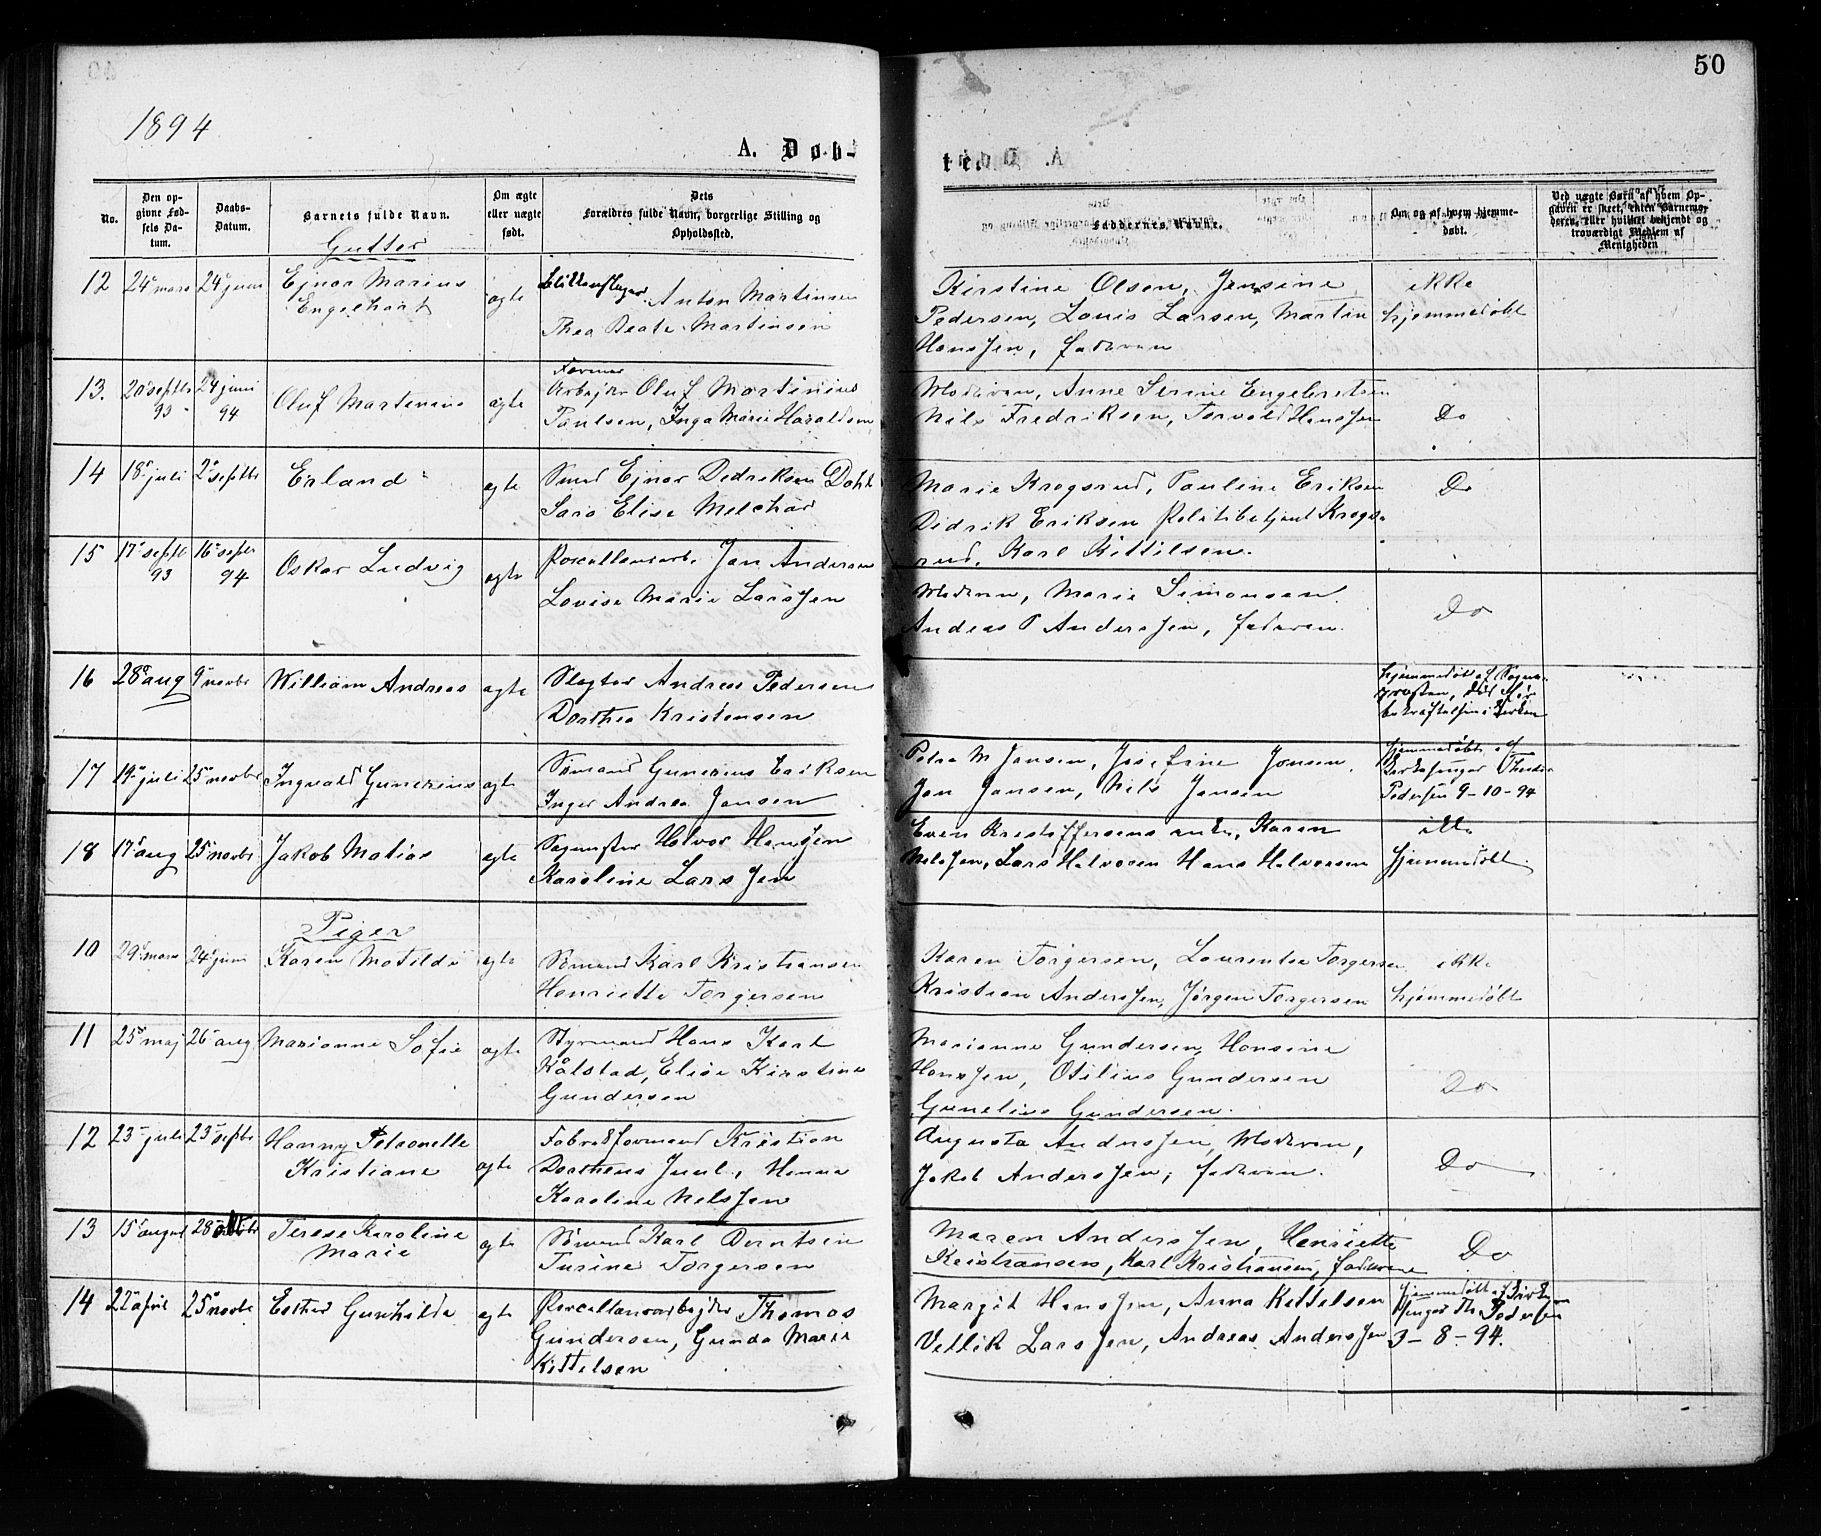 50
1894
A. Døb-
te.
No.
Den op-
givne Fød-
sels Da-
tum.
Daabs-
Datum.
Barnets fulde Navn.
Om ægte
eller uægte
født.
Dets
Forældres fulde Navn, borgerlige Stilling og
Opholdssted.
Faddernes Navne.
Om og af hvem hjemme-
døbt.
Ved uægte Børn af hvem Op-
gaven er skeet, enten Barnemo-
deren, eller hvilket bekjendt og
troværdigt Medlem af
Menigheden
Gutter
12 24 mars 24 juni Ejnar Marius
Engelhart
ægte
Anton Martinsen
Thea Beate Martinsen
Kirstine Olsen, Jensine
Pedersen, Louis Larsen, Martin
Hanssen, faderen
ikke
hjemmedøbt
13. 20 septbr 93 24 juni 94 Oluf Martinius ægte
Former
Arbejder Oluf Martinius
Paulsen, Inga Marie Haraldsen
Moderen, Anne Serine Engebretsen
Nils Fredriksen, Torvald Hanssen
Do
14 18 juli 2 septbr Erland ægte
Smed Ejnar Dedriksen Dahl
Sara Elise Melchior
Marie Krogsrud, Pauline Eriksen
Didrik Eriksen Politibetjent Krogs-
rud, Karl Kittilsen.
Do
15 17 septb 93 16 septr 94 Oskar Ludvig ægte
Porcellansarb. Jan Andersen
Lovise Marie Larssen
Moderen, Marie Simonsen
Andreas P Anderssen, faderen.
Do
16 28 aug 9 novbr William Andreas ægte
Slagter Andreas Pedersen
Dorthea Kristensen
hjemmedøbt af Sogne-
presten,
bekræftelsen i Kirken
17 19 juli 25 novbr Ingvald Gunerius ægte
Sømand Gunerius Eriksen
Inger Andrea Jansen
Petra M Jansen, Josefine Jonsen,
Jan Jansen, Nils Jansen
hjemmedøbt af
Kirkesanger
Pedersen 9-10-94
18 17 aug 25 novbr Jakob Matias ægte
Sagmester Halvor Hanssen
Karoline Larssen
Even Kristoffersens enke, Karen
Nilssen, Lars Halvorsen Hans Halvorsen
ikke
hjemmedøbt.
Piger
10 29 mars 24 juni Karen Matilde ægte
Sømand Karl Kristiansen
Henriette Torgersen
Karen Torgersen, Laurentse Torgersen
Kristian Anderssen, Jørgen Torgersen
ikke
hjemmedøbt
11 25 maj 26 aug Marianne Sofie ægte
Styrmand Hans Karl
Kålstad, Elise Kirstine
Gundersen
Marianne Gundersen, Hansine
Hanssen, Otilius Gundersen
Gunelius Gundersen.
Do
12 23 juli 23 septbr Hanny Petronelle
Kristiane
ægte
Fabrikformand Kristian
Dorthens Juul, Hanna
Karoline Nilssen
Augusta Anderssen, Moderen,
Jakob Anderssen, faderen.
Do
13 15 august 28 Terese Karoline
Marie
ægte
Sømand Karl Berntsen
Turine Torgersen
Maren Anderssen, Henriette
Kristiansen, Karl Kristiansen, faderen
Do
14 22 april 25 novbr Ester Gunhilda ægte
Porcellansarbejder Thomas
Gundersen, Gunda Marie
Kittelsen
Margit Hanssen, Anna Kittelsen
Vetlik Larssen, Andreas Anderssen
hjemmedøbt af Kirke-
sanger Th Pedersen
3-8-94.